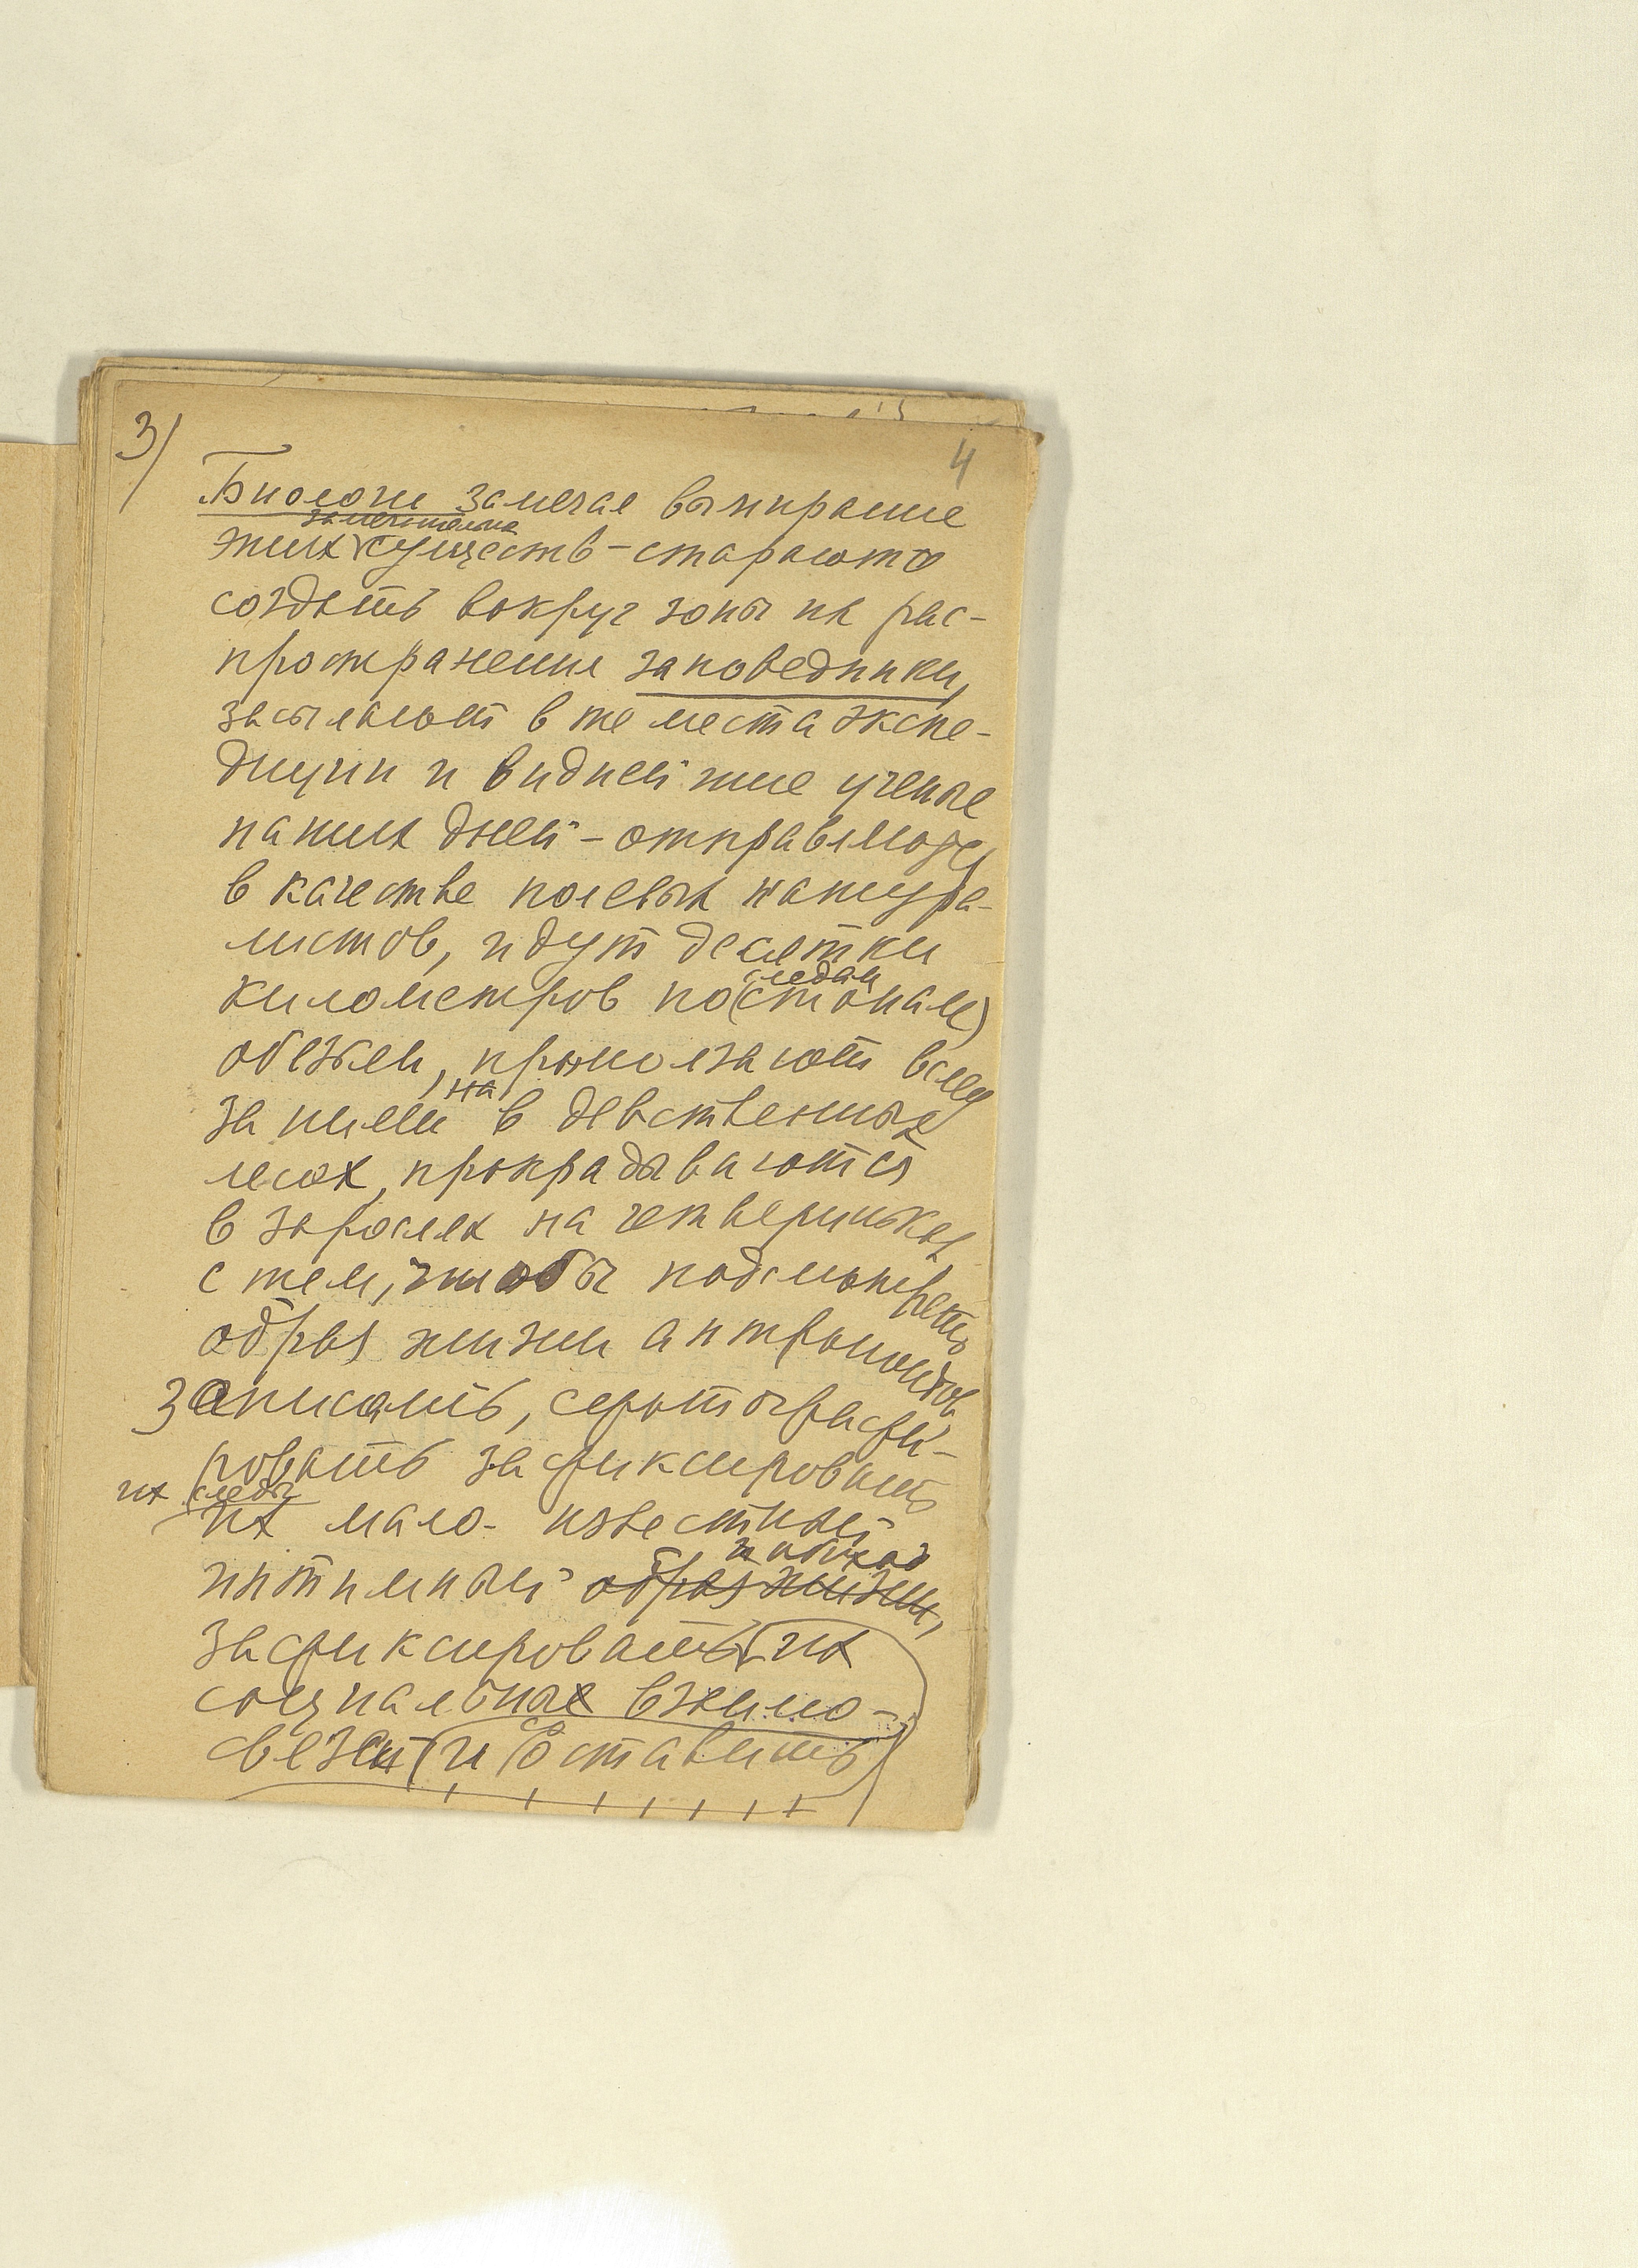 3/ 4
Биологи замечая вымирание
замечательно
этих существ - стараются
создать вокруг зоны их рас-
пространения заповедники,
засылают в те места экспе-
диции и виднейшие ученые
наших дней - отправляясь
в качестве полевых натура-
листов, идут десятки
следам
километров по (стопам)
обезьян, проползают вслед
на
за ними в девственных
лесах, прокрадываются
в зарослях на четвереньках
с тем, чтобы подсмотреть
образ жизни антропоидов
записать, сфотографи-
ровать зафиксировать
их (следы
их мало-известный
и обиход
интимный образ жизни,
зафиксировать их
социальные взаимо-
связи (и оставить